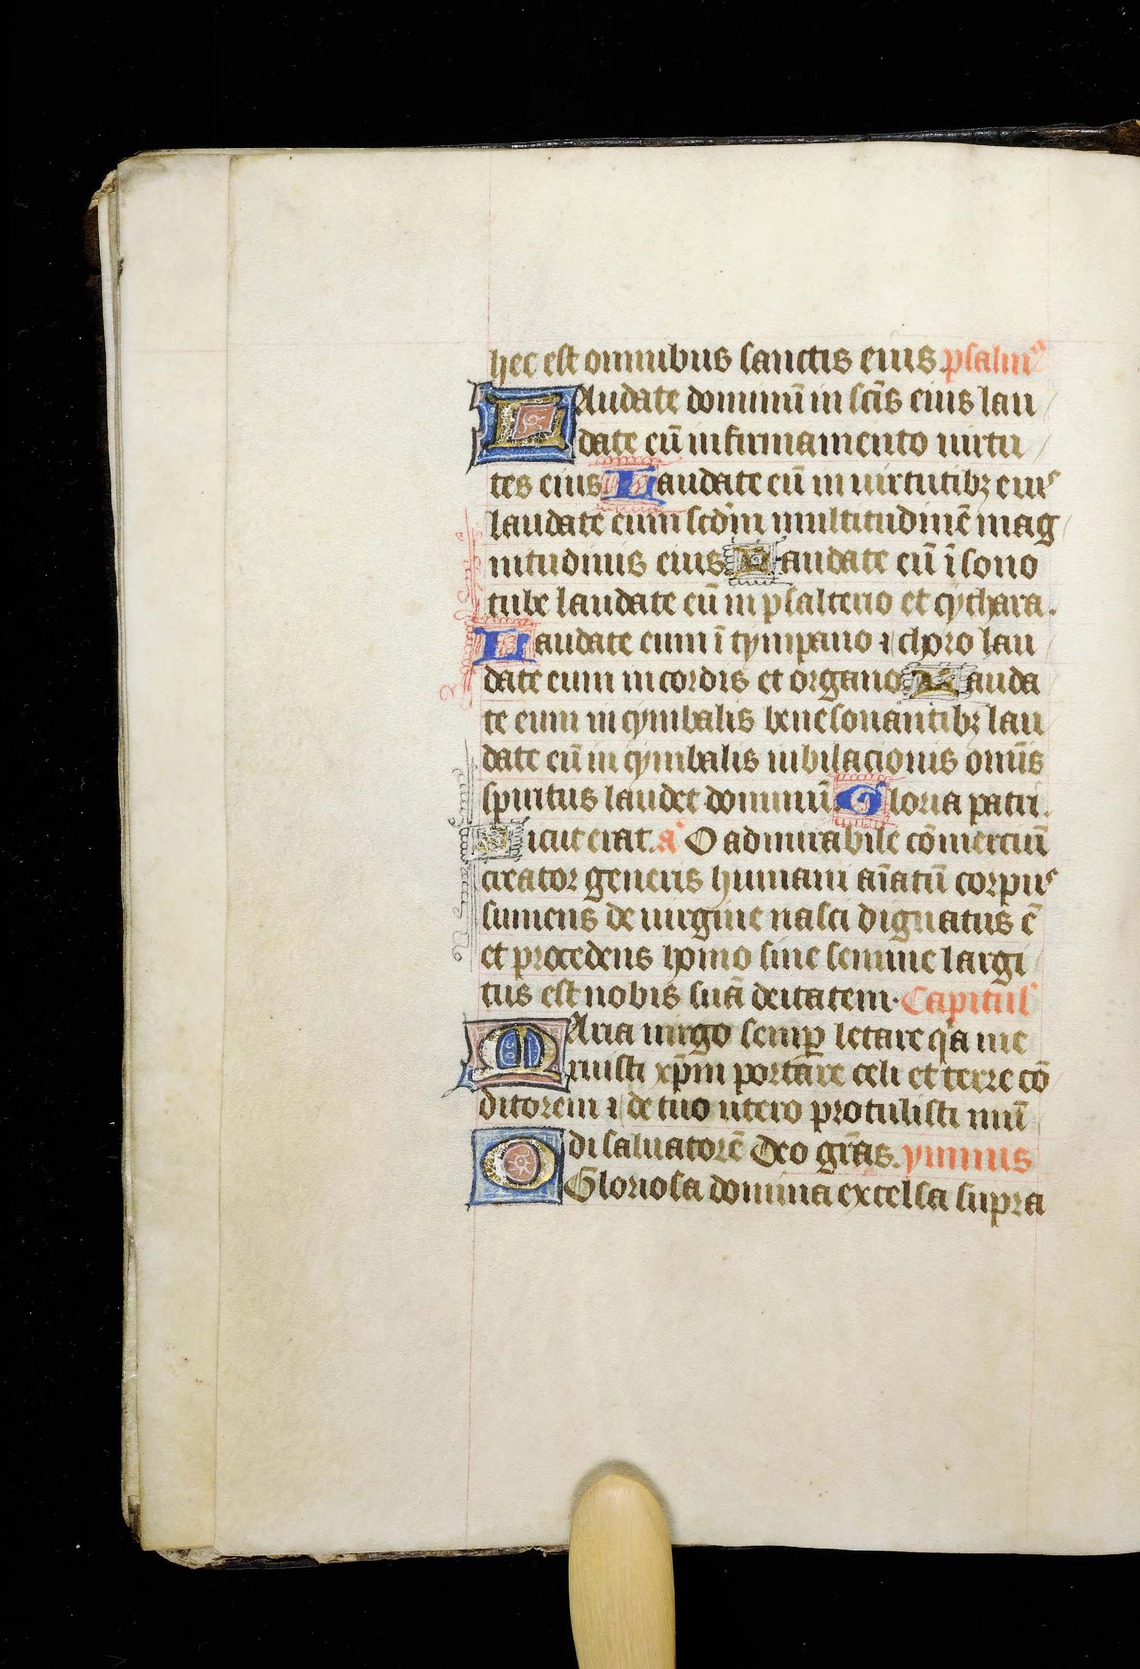 hec est omnibus sanctis eius psalmꝰ
Laudate dominū in scīs eius lau
date eū in firmamento uirtu
tes eius Laudate eū in uirtutibꝫ eiuˢ
laudate eum scd̄m multitudinē mag
nitudinis eius Laudate eū ī sono
tube laudate eū in psalterio et cythara.
Laudate eum ī tympano ⁊ choro lau
date eum in cordis et organo Lauda
te eum in cymbalis benesonantibꝫ lau
date eū in cymbalis iubilacionis omīs
spiritus laudet dominū Gloria patri.
Sicut erat. aᵃ O admirabile cōmerciū
creator generis humani aīatū corpuˢ
sumens de uirgine nasci dignatus ē
et procedens homo sine semine largi
tus est nobis suā deitatem· Capitulˀ
Maria uirgo semꝑ letare qͥa me
ruisti xp̄m portare celi et terre cō
ditorem ⁊ de tuo utero protulisti mū
di saluatorē Deo grās. ymnus
O Gloriosa domina excelsa supra